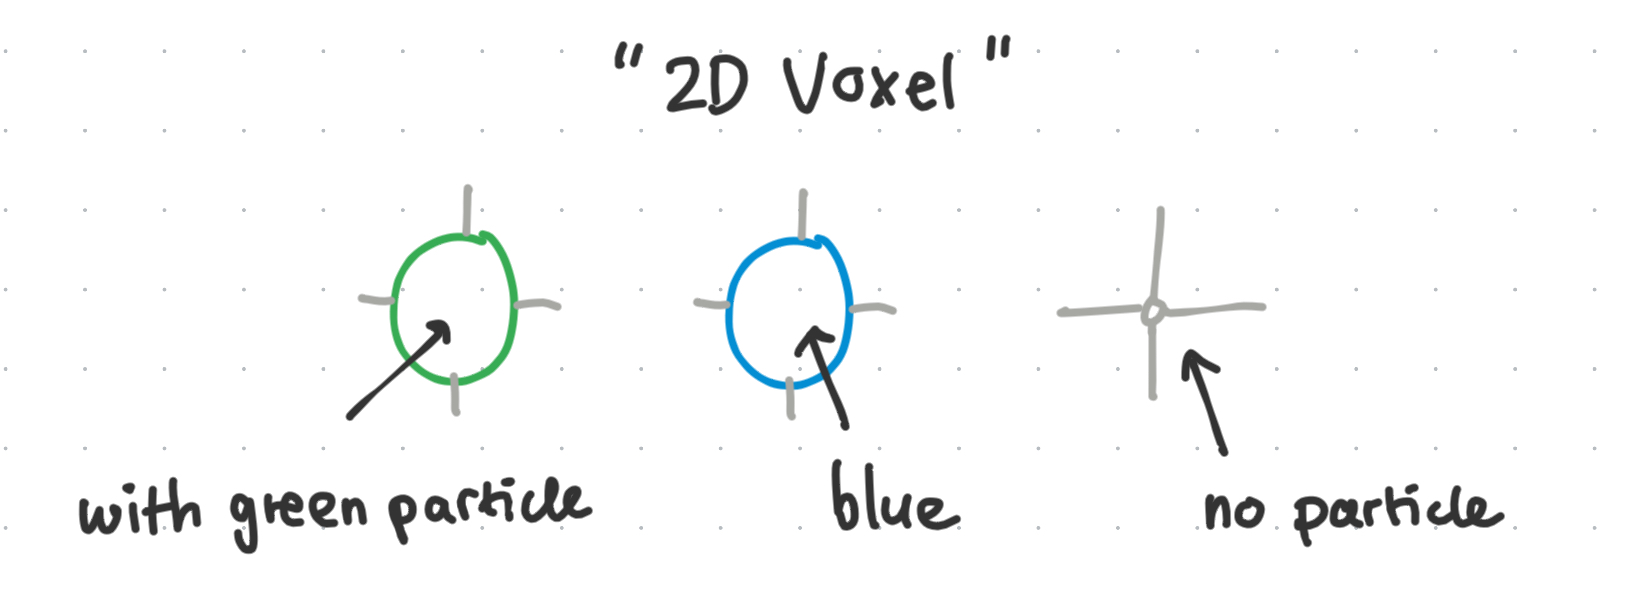 "2D Voxel"
with green particle
blue
no particle